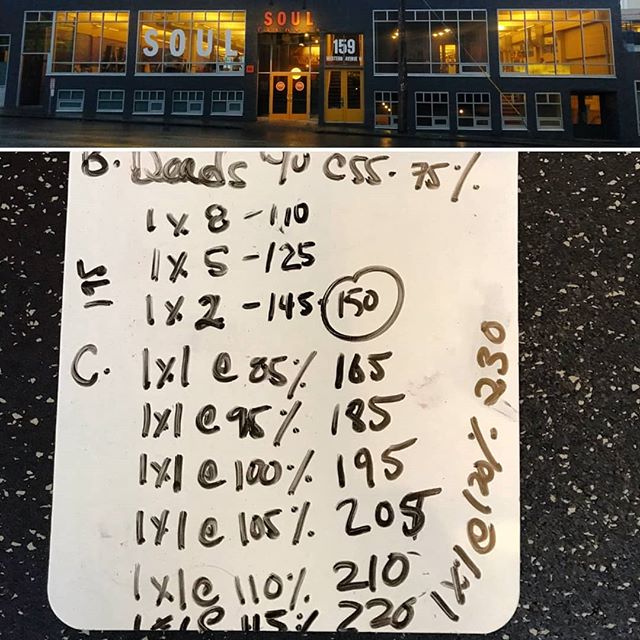 SOUL
SOUL
159
WESTERN AVENUE W
B. Deads 90 @ 55-75%
1x8-110
1x5-125
1x2-145 150
195
C. 1x1 @ 85% 165
1x1 @ 95% 185
1x1 @ 100% 195
1x1 @ 105% 205
1x1 @ 110% 210
1x1 @ 115% 220
1x1 @ 120% 230